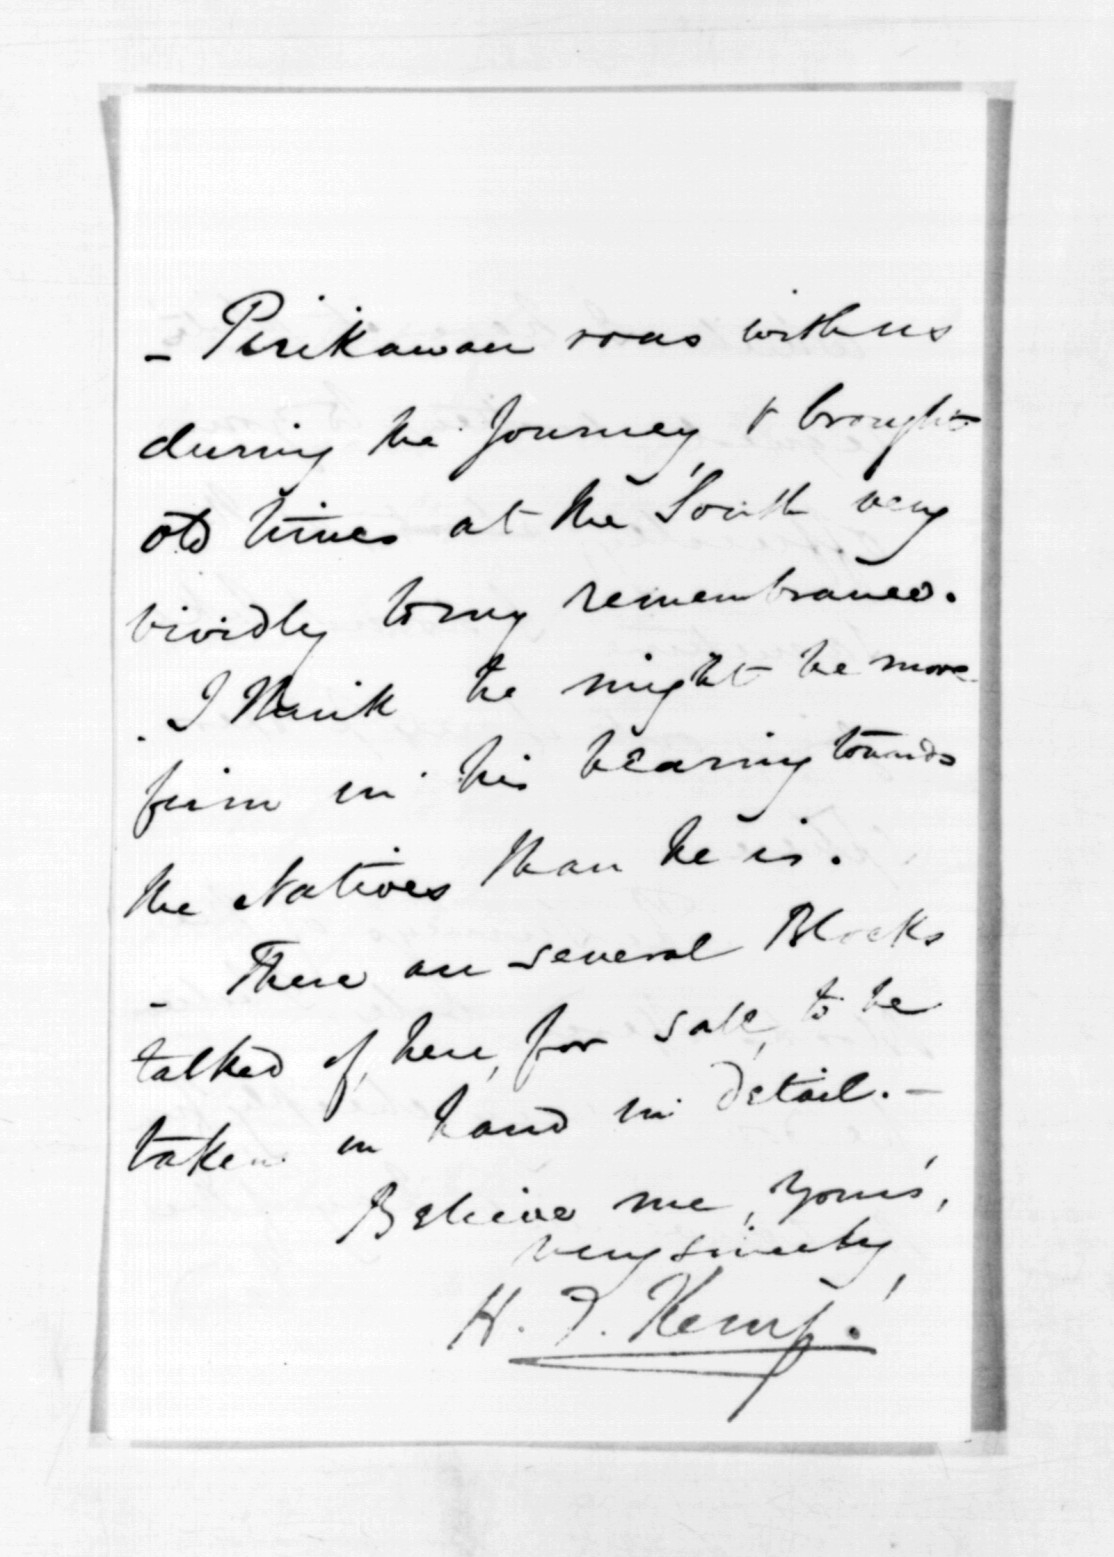 – Pirikawau was with us
during the Journey, & brought
old times at the South very
vividly to my remembrance.
I think he might be more
firm in his bearing towards
the Natives than he is.
– There are several Blocks
talked of, here, for sale, to be
taken in hand in detail. –
Believe me, Yours,
very sincerely,
H. T. Kemp.